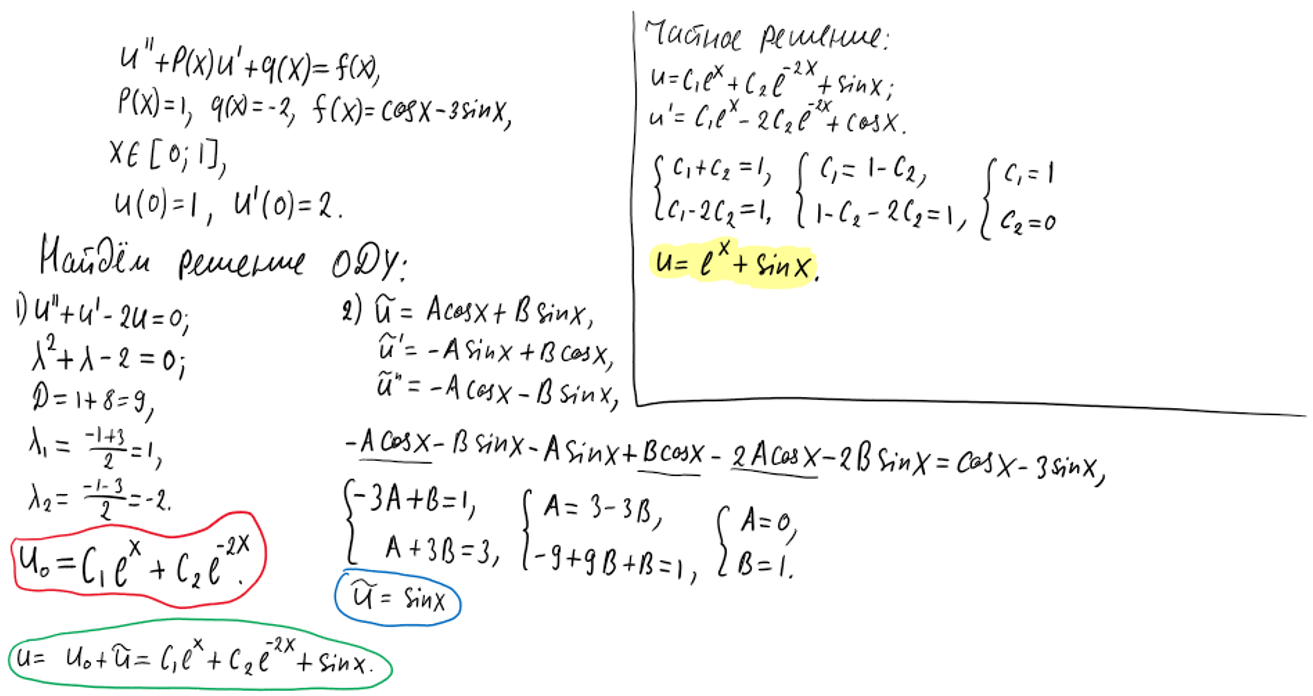 u''+P(x)u'+q(x)=f(x),
P(x)=1, q(x)=-2, f(x)=cosx-3sinx,
x∈[0;1],
u(0)=1, u'(0)=2.
Найдём решение ОДУ:
1) u''+u'-2u=0;
λ²+λ-2=0;
D=1+8=9,
λ₁=(-1+3)/2=1,
λ₂=(-1-3)/2=-2.
u₀=C₁eˣ+C₂e⁻²ˣ.
2) ũ=Acosx+Bsinx,
ũ'=-Asinx+Bcosx,
ũ''=-Acosx-Bsinx,
-Acosx-Bsinx-Asinx+Bcosx-2Acosx-2Bsinx=cosx-3sinx,
{-3A+B=1, {A=3-3B, {A=0,
A+3B=3, -9+9B+B=1, B=1.
ũ=sinx
u= u₀+ũ=C₁eˣ+C₂e⁻²ˣ+sinx.
Частное решение:
u=C₁eˣ+C₂e⁻²ˣ+sinx;
u'=C₁eˣ-2C₂e⁻²ˣ+cosx.
{C₁+C₂=1, {C₁=1-C₂, {C₁=1
C₁-2C₂=1, 1-C₂-2C₂=1, C₂=0
u=eˣ+sinx.